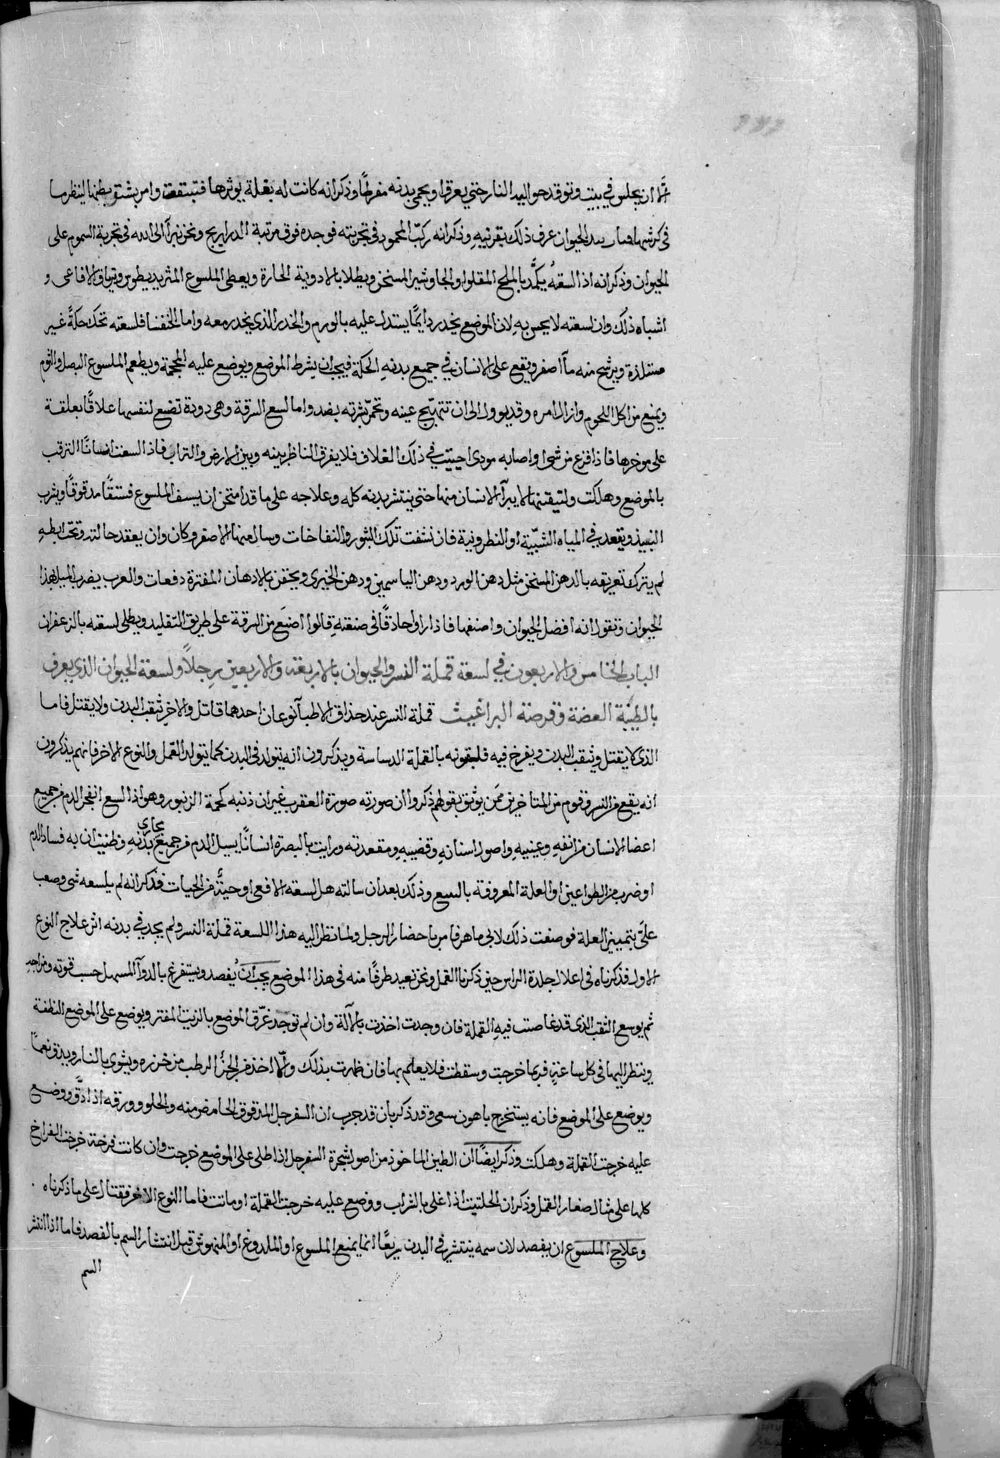 ثم ان يجلس في بيت وتوقد حواليه النار حتى يعرق او يحمى بدنه مفرطا وذكر انه كانت له بغلة يوثرها فتبتفقت وامر بشق بطنها لينظر ما
في كرشها بدن الحيوان عرف ذلك بقرنيه وذكر انه ركب المحمود في تجربته فوجده فوق مرتبة الذراريح ونحن نبرأ الى الله في تجربة السموم على
الحيوان وذكر انه اذا لسعه يكمد بالملح المقلو او الجاوشير المسخن ويطلا بالادوية الحارة ويعطى الملسوع المثريديطوس وترياق الافاعى و
اشباه ذلك وان لسعته لا يحس به لان الموضع يخدر دايمًا يستدل عليه بالورم والخدر الذي يخدر معه واما الخنفسا فلسعته تحك حكة غير
مستلذة ويرشح منه ماء اصفر ويقع على الانسان في جميع بدنه الحكة فيجب ان يشرط الموضع ويوضع عليه المحجمة ويطعم الملسوع البصل والثوم
ويمنع من اكل اللحوم وازالة امره وقد يوول الى ان تتهيج عينه وتحمر بثرته بفصد واما لسع السرقة وهي دودة تضع لنفسها علاقًا بعلقة
على موخرها فاذا فزع من شى او اصابه مودى اجتبت في ذلك الغلاف فلا يفرق الناظر بينه وبين الارض والتراب فاذا لسعت انسانًا التزقت
بالموضع وهلكت ولشيقتها لا يبرأ الانسان منها حتى ينتثر بدنه كله وعلاجه على ما قد امتحن ان يسف الملسوع فستقًا مدقوقًا ويشرب
النبيذ ويقعد في المياه الشبّية او النطرونية فان نشفت تلك البثور والنفاخات وسال منها الاصفر وكان وان بعقد حالته وتحت ابطه
لم يترك تعريقه بالدهن المسخن مثل دهن الورد ودهن الياسمين ودهن الخيرى ويحتقن بالادهان المفترة دفعات والعرب يضرب المثل بهذا
الحيوان وتقول انه افضل الحيوان واصنعها فاذا راوا حاذقًا في صنعته قالوا اصنع من السرقة على طريق التقليد ويطلى لسعته بالزعفران
الباب الخامس والاربعون في لسعة قملة النسر والحيوان بالاربعة والاربعين رجلًا ولسعة الحيوان الذي يعرف
بالطبّة العضة وقرصة البراغيث قملة النسر عند حذاق الاطبا نوعان احدهما قاتل والاخر ثيقب البدن ولا يقتل فاما
الذي لا يقتل ويثقب البدن ويفرخ فيه فلقبونه بالقملة الدساسة ويذكرون انه يتولد في البدن كما يتولد القمل والنوع الاخر فانهم يذكرون
انه يقع من النسر وقوم من المتاخرين ممن يوثق بقولهم ذكروا ان صورته صورة العقرب غير ان ذنبه كحمة الزنبور وهو اذا لسع انفجر الدم من جميع
اعضا الانسان من انفه وعينيه واصول اسنانه وقضيبه ومقعدته ورايت بالبصرة انسانًا يسيل الدم من جميع مجارى بدنه وظننت ان به فساد الدم
او ضرب من الطواعين او العلة المعروفة بالسبع وذلك بعد ان سالته هل لسعته الافعى او حية من الحيات فذكر انه لم يلسعه شى وصعب
علىّ تمييز العلة فوصفت ذلك لابى ماهر فامر باحضار الرجل ولما نظر اليه هذا اللسعة قملة النسر ولم يجد في بدنه اثر علاج النوع
الاول فذكرناه في اعلال جلدة الراس حين ذكرنا القمل ونحن نعيد طرفًا منه في هذا الموضع يجب ان يُفصد ويستفرغ بالدواء المسهل حسب قوته ومزاجه
ثم يوسع الثقب الذى قد غاصت فيه القملة فان وجدت اخذت بالآلة وان لم توجد غرّق الموضع بالزيت المفتر ويوضع على الموضع النظفة
وينظر اليها في كل ساعة فربما خرجت وسقطت فلا يعلم بها فان ظهرت بذلك والا اخذ من الجزُ الرطب من خزره ويشوى بالنار ويدق نعمًا
ويوضع على الموضع فانه يستخرج باهون سعى وقد ذكر بان قد جرب ان السفرجل المدقوق الحامض منه والحلو وورقه اذا دقّ ووضع
عليه خرجت القملة وهلكت وذكر ايضًا ان الطين الماخوذ من اصول شجرة السفرجل اذا طلى على الموضع خرجت وان كانت فرخة خرجت الفراخ
كلها على مثال صغار القمل وذكر ان الحلتيت اذا غلى بالشراب ووضع عليه خرجت القملة او ماتت فاما النوع الاخر فقتال على ما ذكرناه
وعلاج الملسوع ان يفصد لان سمه ينتثر في البدن ربعًا انما يمنع الملسوع او الملدوغ او المنهوش قبل انتشار السم بالفصد فاما اذا انتثر
السم